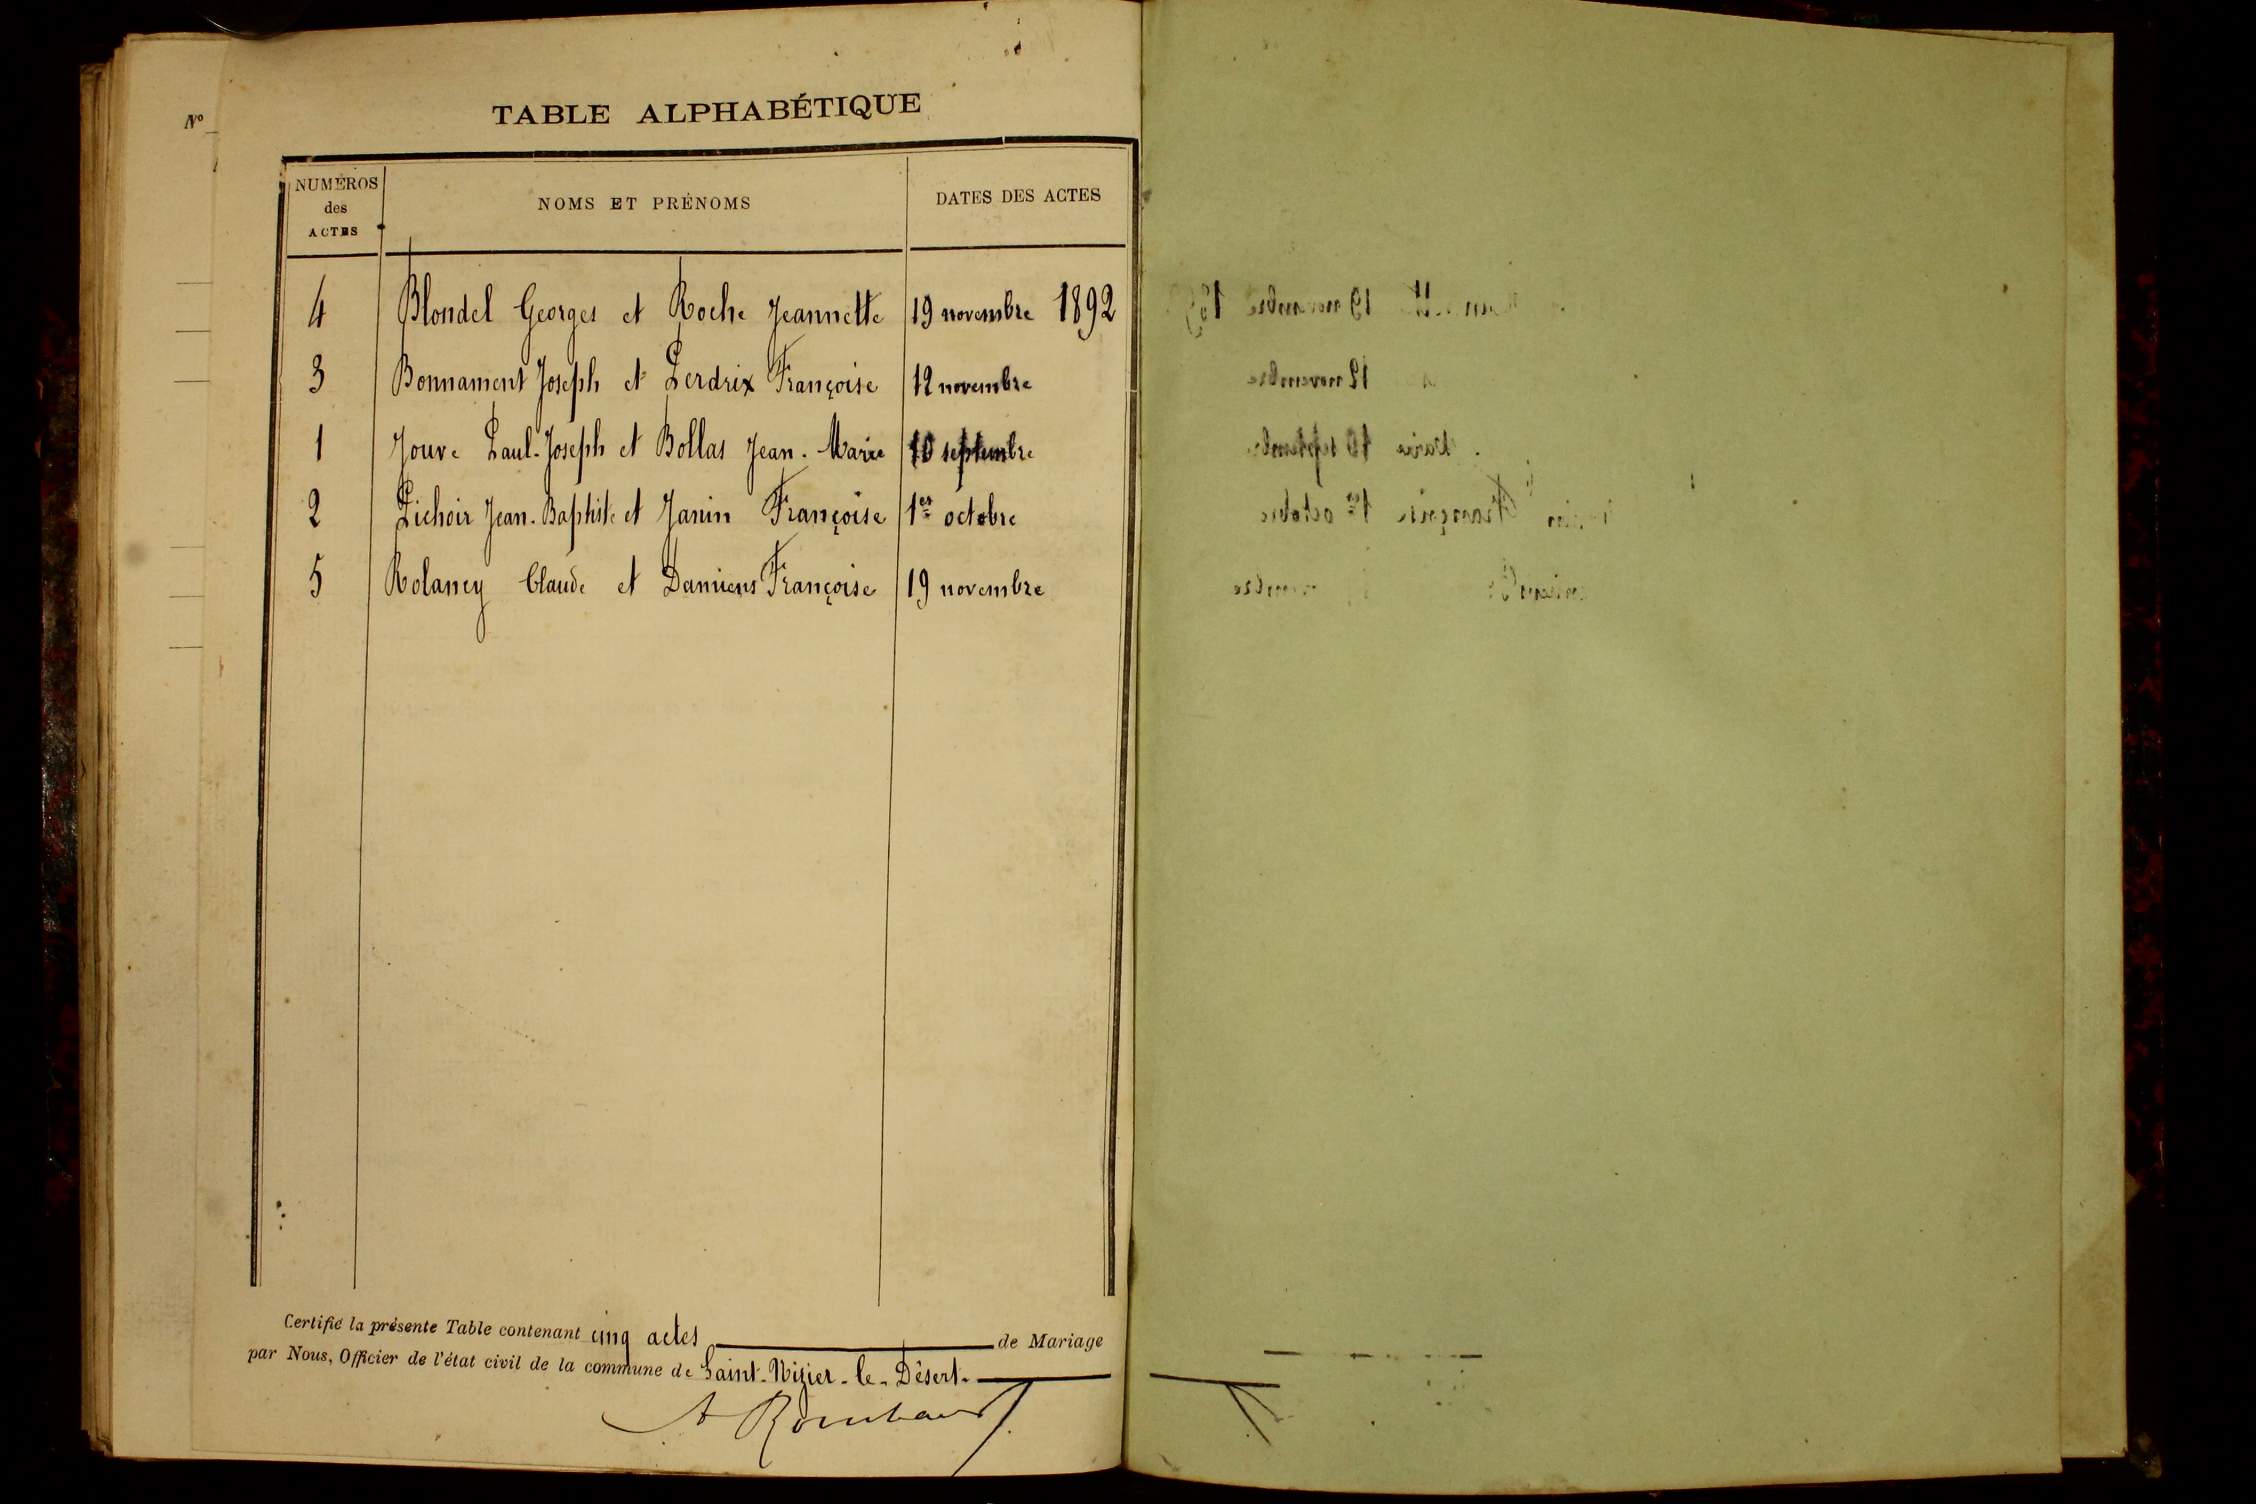 Nº
TABLE ALPHABÉTIQUE
NUMÉROS des ACTES NOMS ET PRÉNOMS DATES DES ACTES
4 Blondel Georges et Roche Jeannette 19 novembre 1892
3 Bonnament Joseph et Perdrix Françoise 12 novembre
1 Jouve Paul-Joseph et Bollas Jean-Marie 10 septembre
2 Pichoir Jean-Baptiste et Janin Françoise 1er octobre
5 Rolancy Claude et Damiens Françoise 19 novembre
Certifié la présente Table contenant cinq actes de Mariage
par Nous, Officier de l'état civil de la commune de Saint-Nizier-le-Désert.